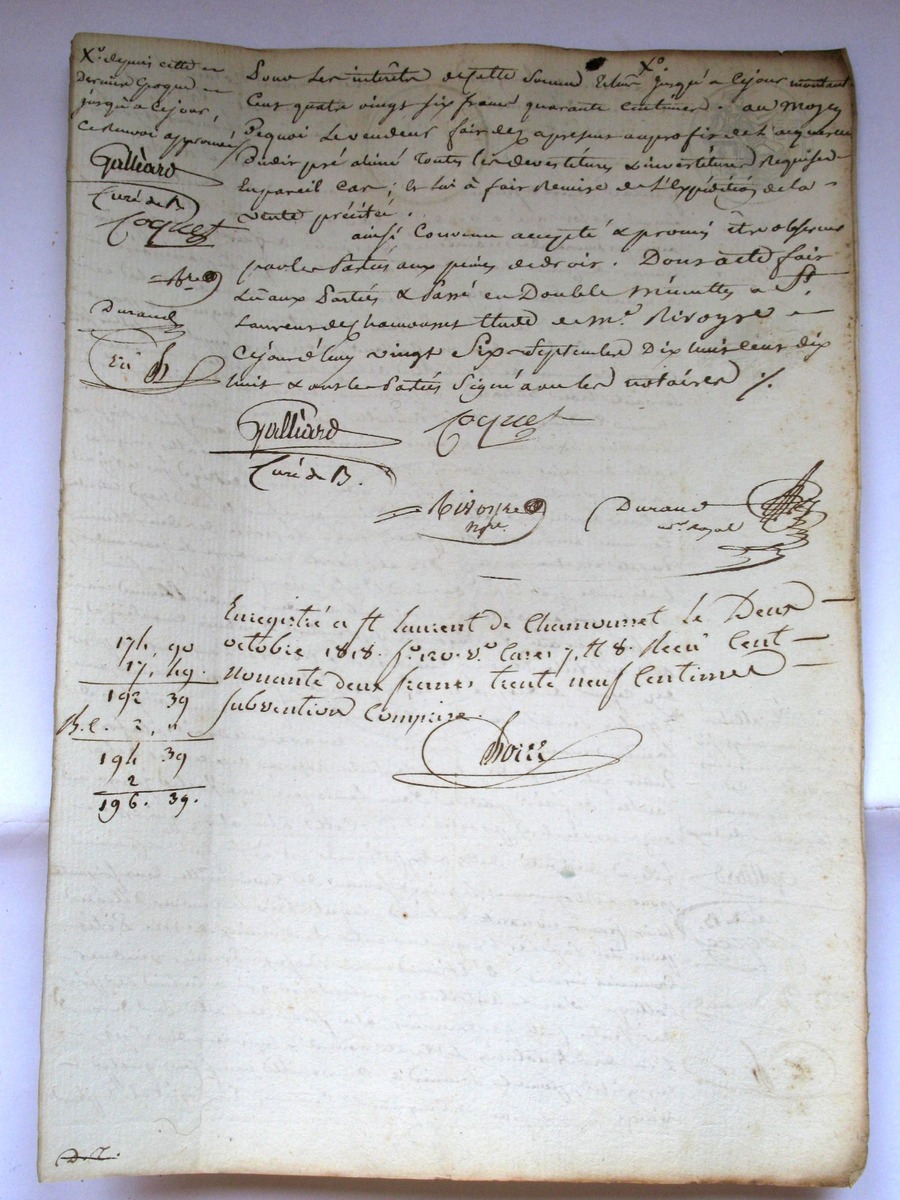 Xo. depuis cette
derniere Epoque
jusqu'a cejour,
ce Renvoi approuvé
Galliard
Curé de B.
Coquet
Re
Durand
Xo.
pour les intérêts de cette Somme Echus jusqu'a cejour montant
Cent quatre vingt six francs quarante centimes. au moyen
Dequoi le vendeur fait dez apresent au profit de l'acquereur
Dudit pré aliéné toutes les devestitures & investitures Requises
En pareil Cas; et lui à fait Remise de l'Expédition de la
vente précitée.
ainsi Convenu accepté & promis être observé
par les Partiés aux peines de droit. Dont acte fait
Lû aux Partiés & Passé en Double minuttes a St.
Laurent de Chamousset Etude de me. Rivoyre
Cejourd'huy vingt Six Septembre Dix huit cent dix
huit & ont les Partiés Signé avec les notaires ./.
Galliard
Curé de B.
Coquet
Rivoyre
nre.
Durand
re. Royal
Enregistré a St Laurent de Chamousset Le Deux
octobre 1818. fo. 120. vo. Cases 7. et 8. Recu Cent
nonante deux francs trente neuf Centimes
subvention Comprise.
174, 90
17, 49.
192 39
2, "
194 39
2
196. 39.